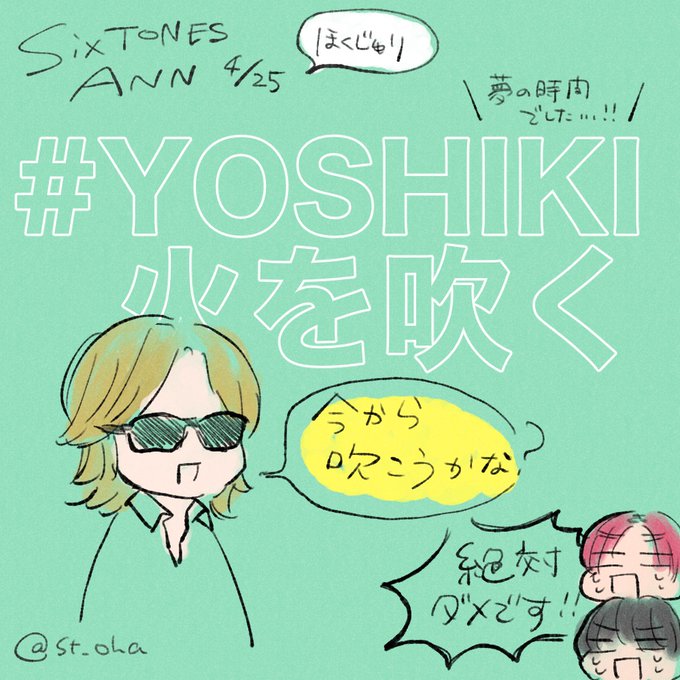 SixTONES
ANN 4/25
ほくじゅり
夢の時間
でした…!!
#YOSHIKI
火を吹く
今から
吹こうかな?
絶対
ダメです!!
@st_oha